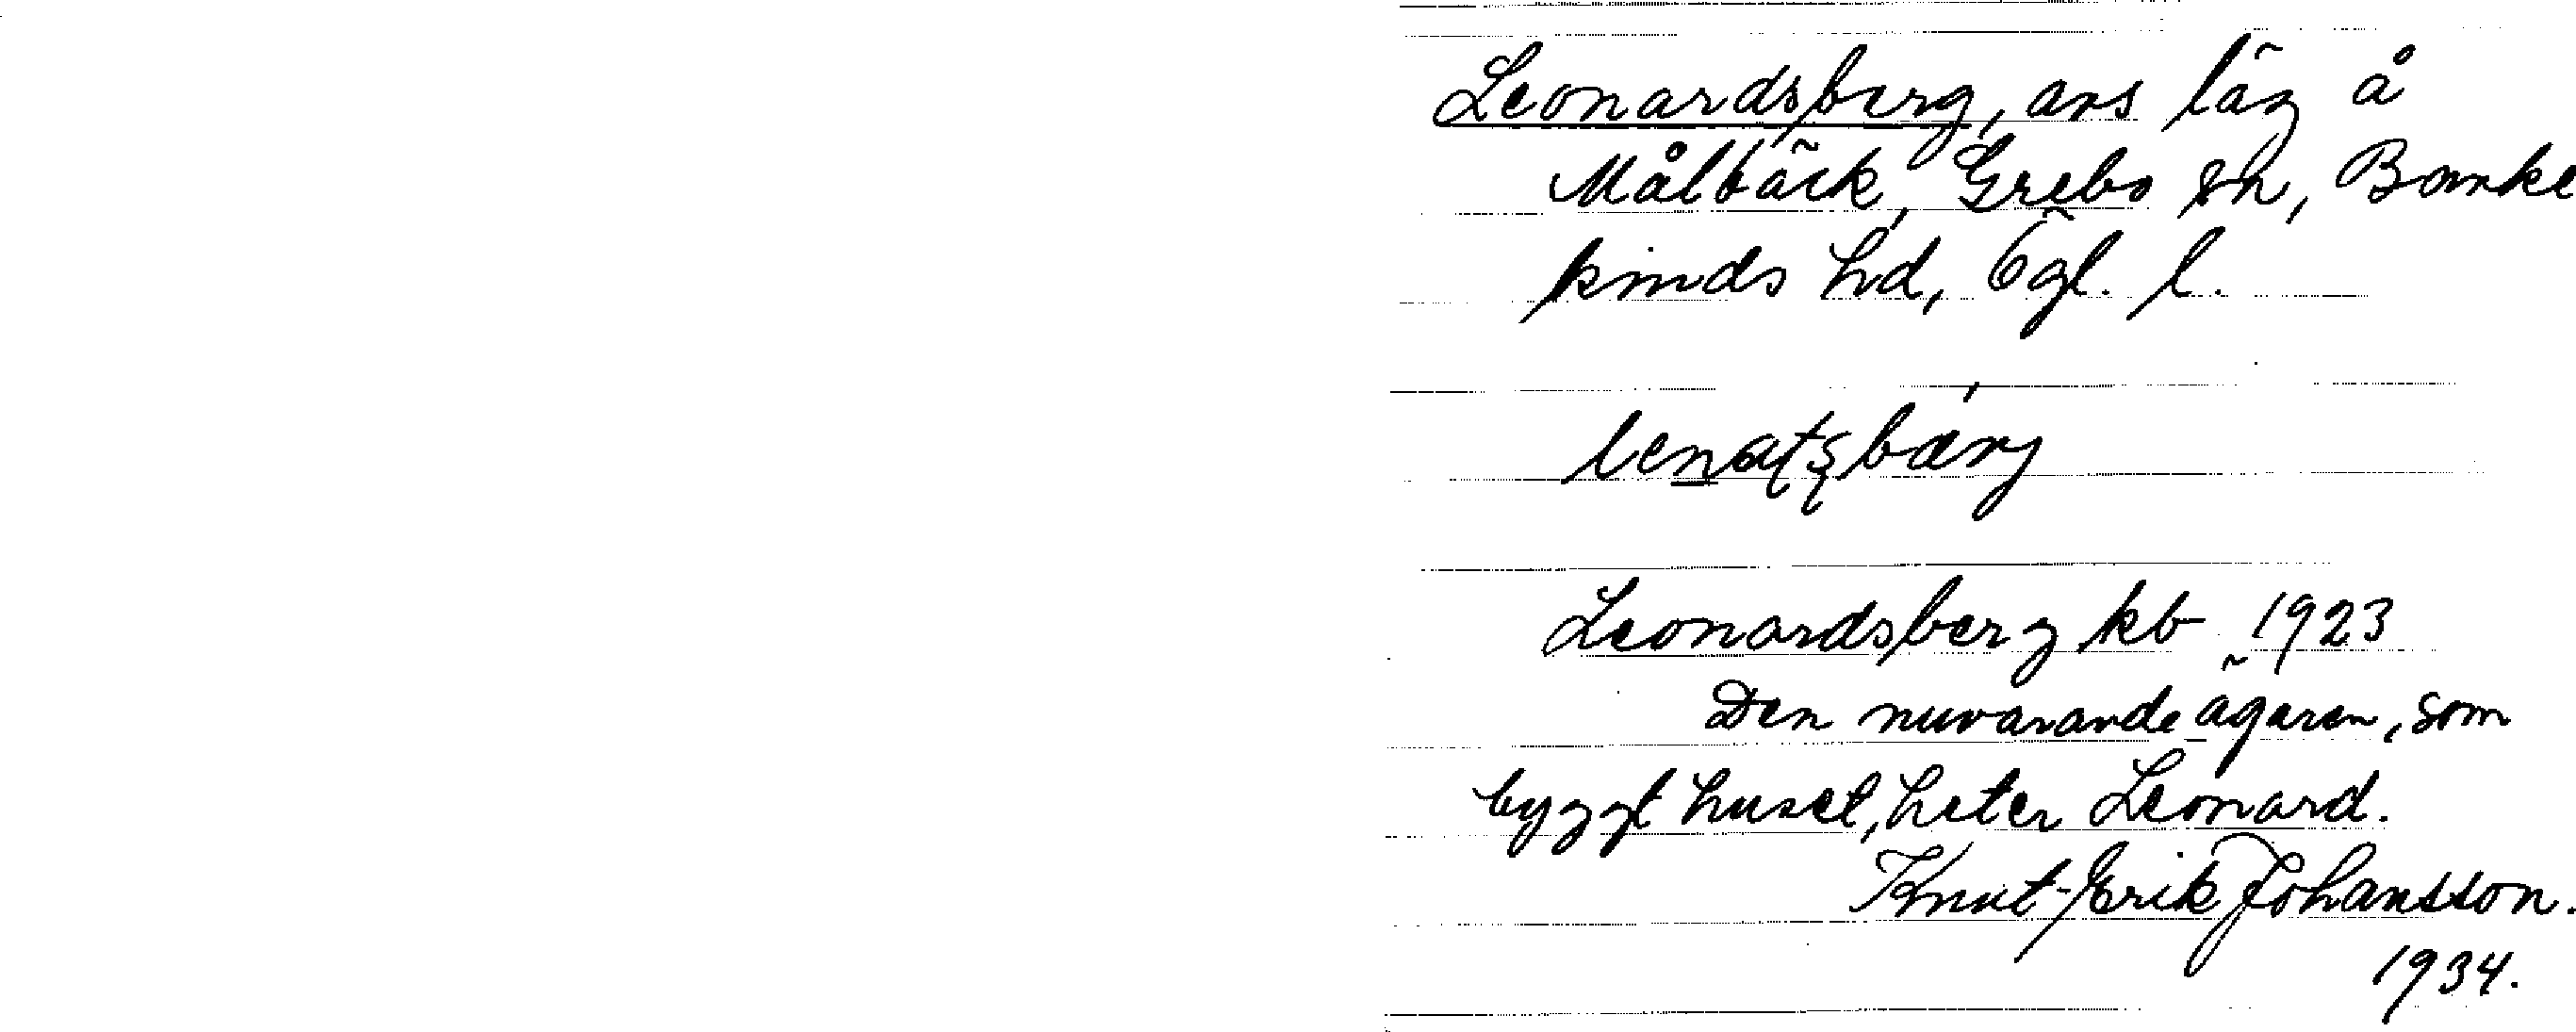 Leonardsberg, avs läg å
Målbäck, Grebo sn, Banke
kinds hd, Ögl. l.
Leonardsberg kb 1923
Den nuvarande ägaren, som
byggt huset, heter Leonard.
Knut-Erik Johansson.
1934.